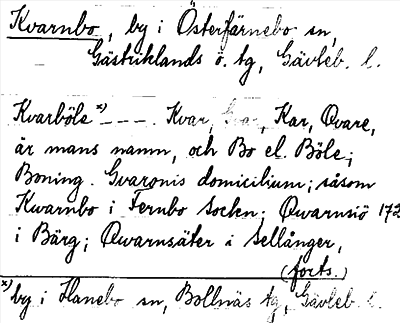 Kvarnbo, by i Österfärnebo sn,
Gästriklands ö. tg, Gävleb. l.
Kvarböle x) - - - . Kvar, Gvar, Kar, Qvare,
är mans namn, och Bo el. Böle;
Boning. Gvaronis domicilium; såsom
Kwarnbo i Fernbo Sochn; Qwarnsiö 172
i Bärg; Qwarnsäter i Sellånger,
(forts.)
x) by i Hanebo sn, Bollnäs tg, Gävleb. l.